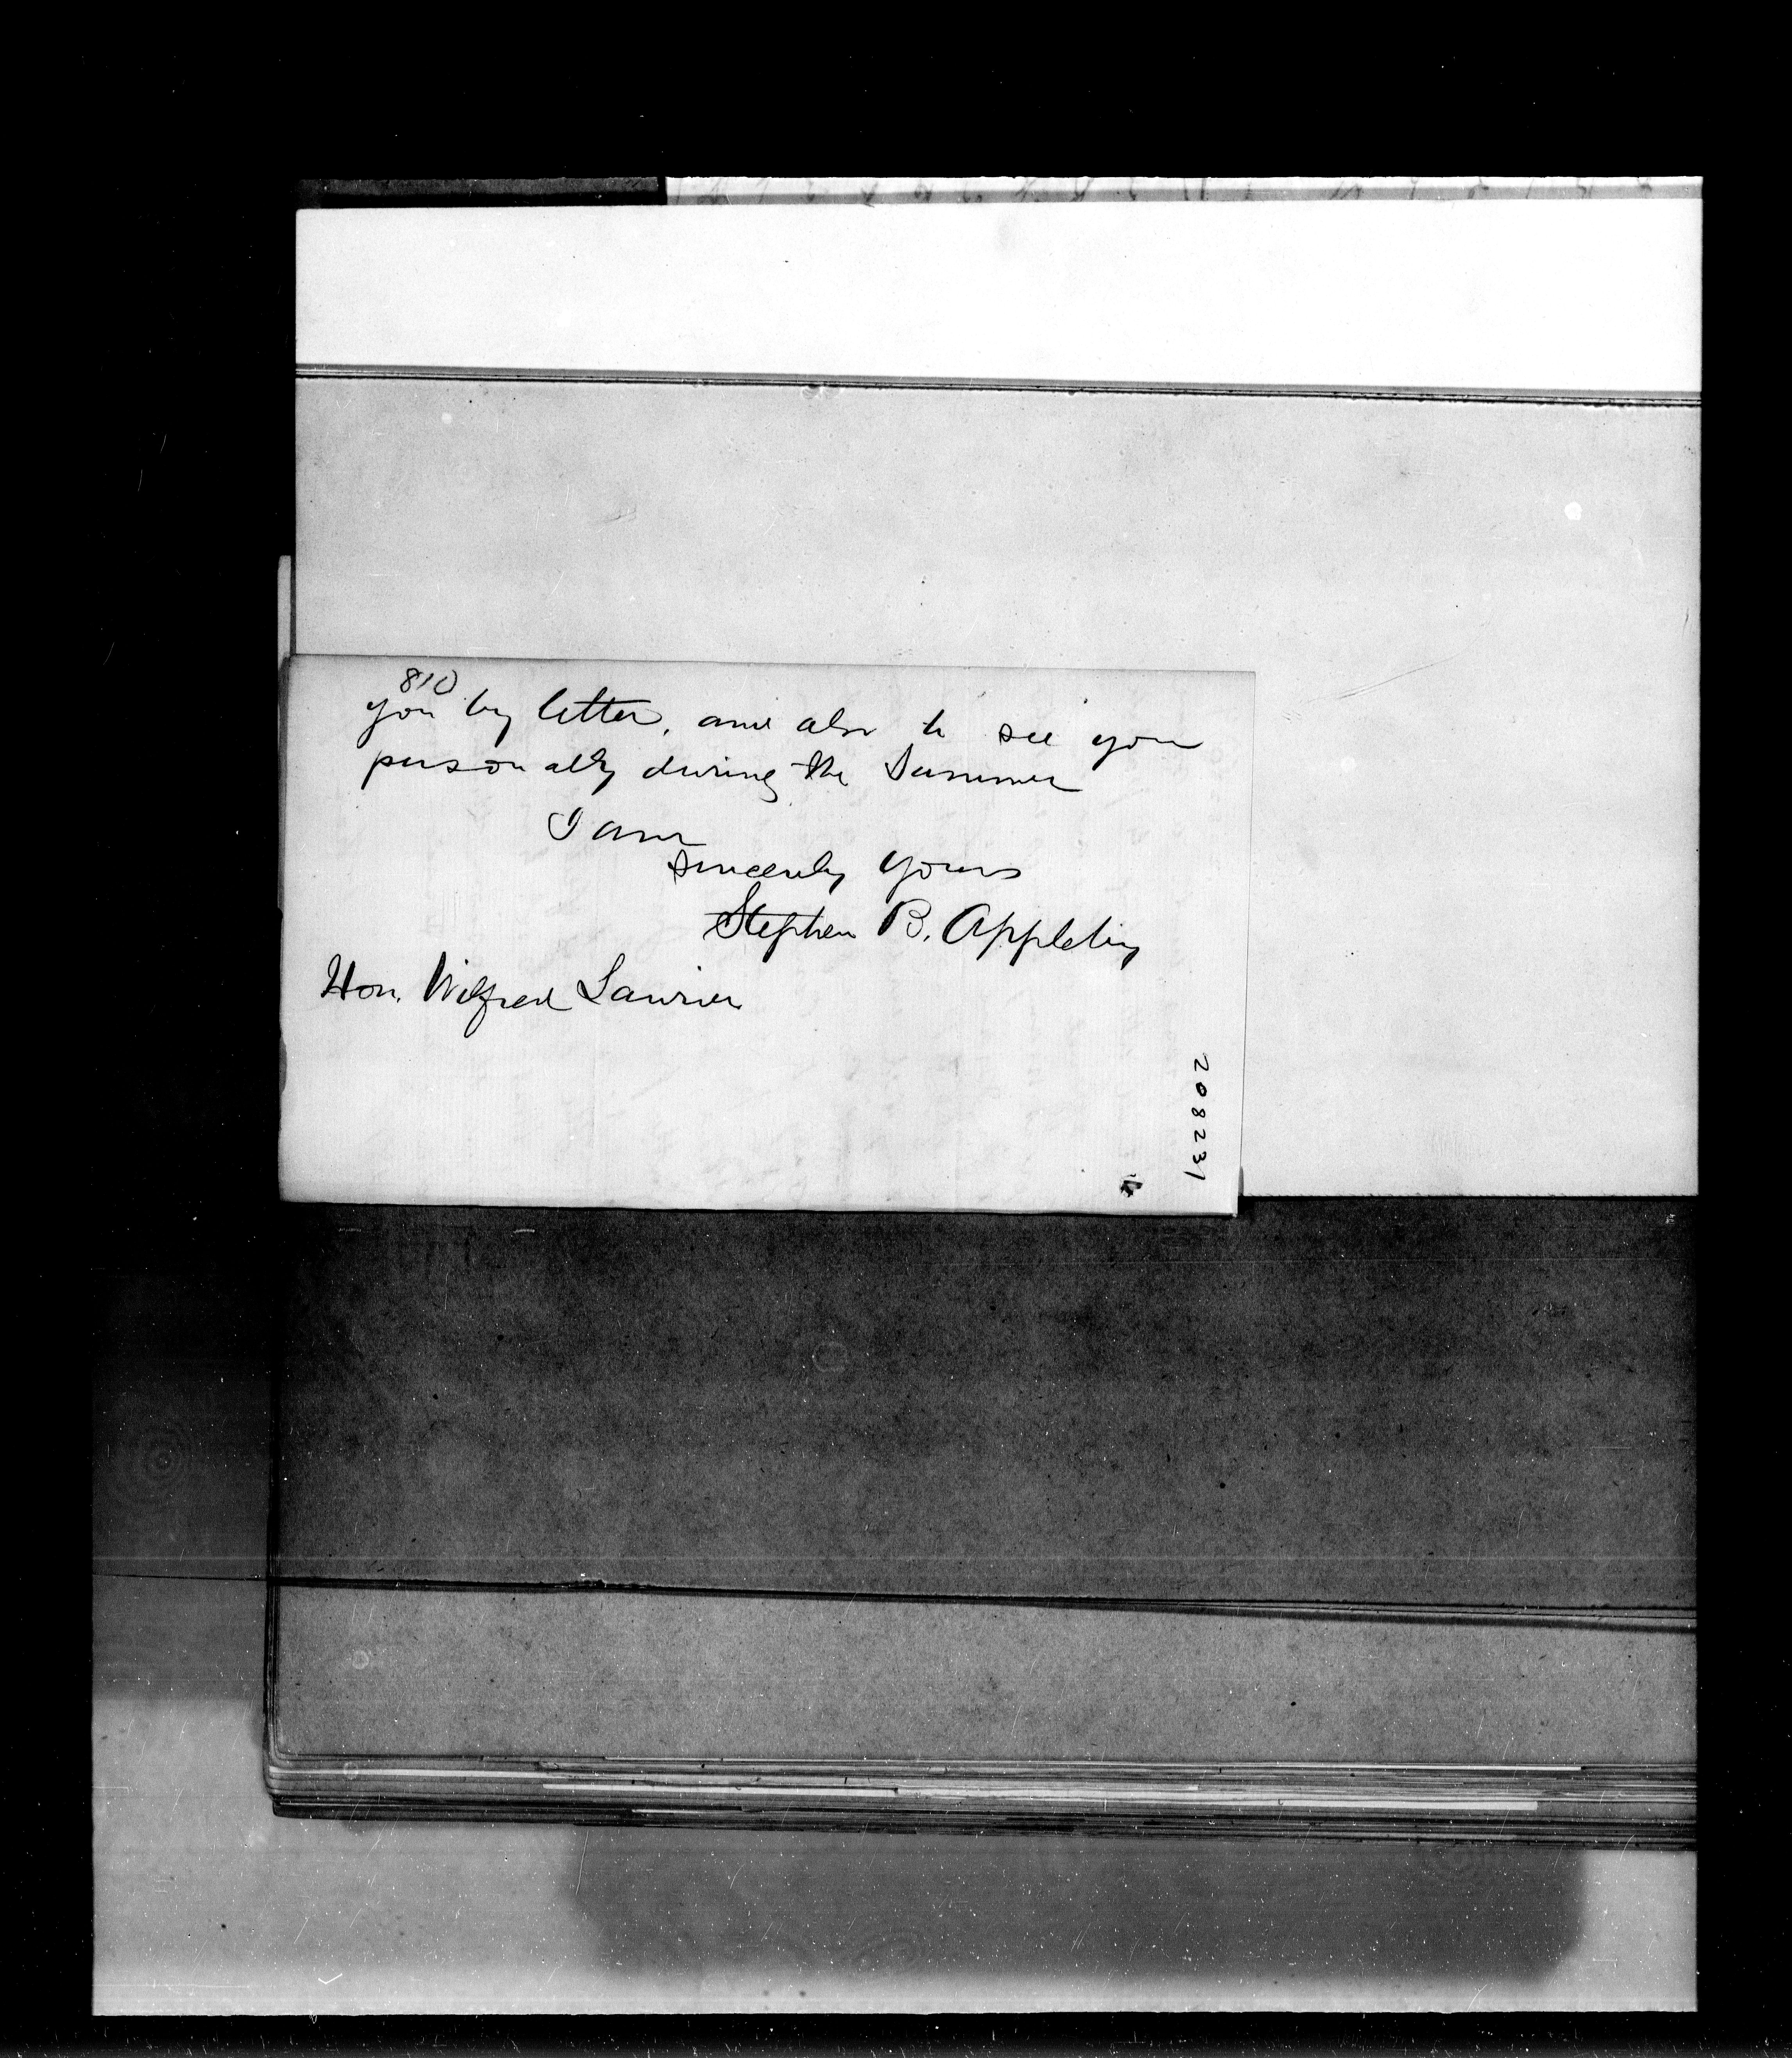 810
you by letter, and also to see you
personally during the Summer
I am
Sincerely Yours
Stephen B. Appleby
Hon. Wilfred Laurier
208231